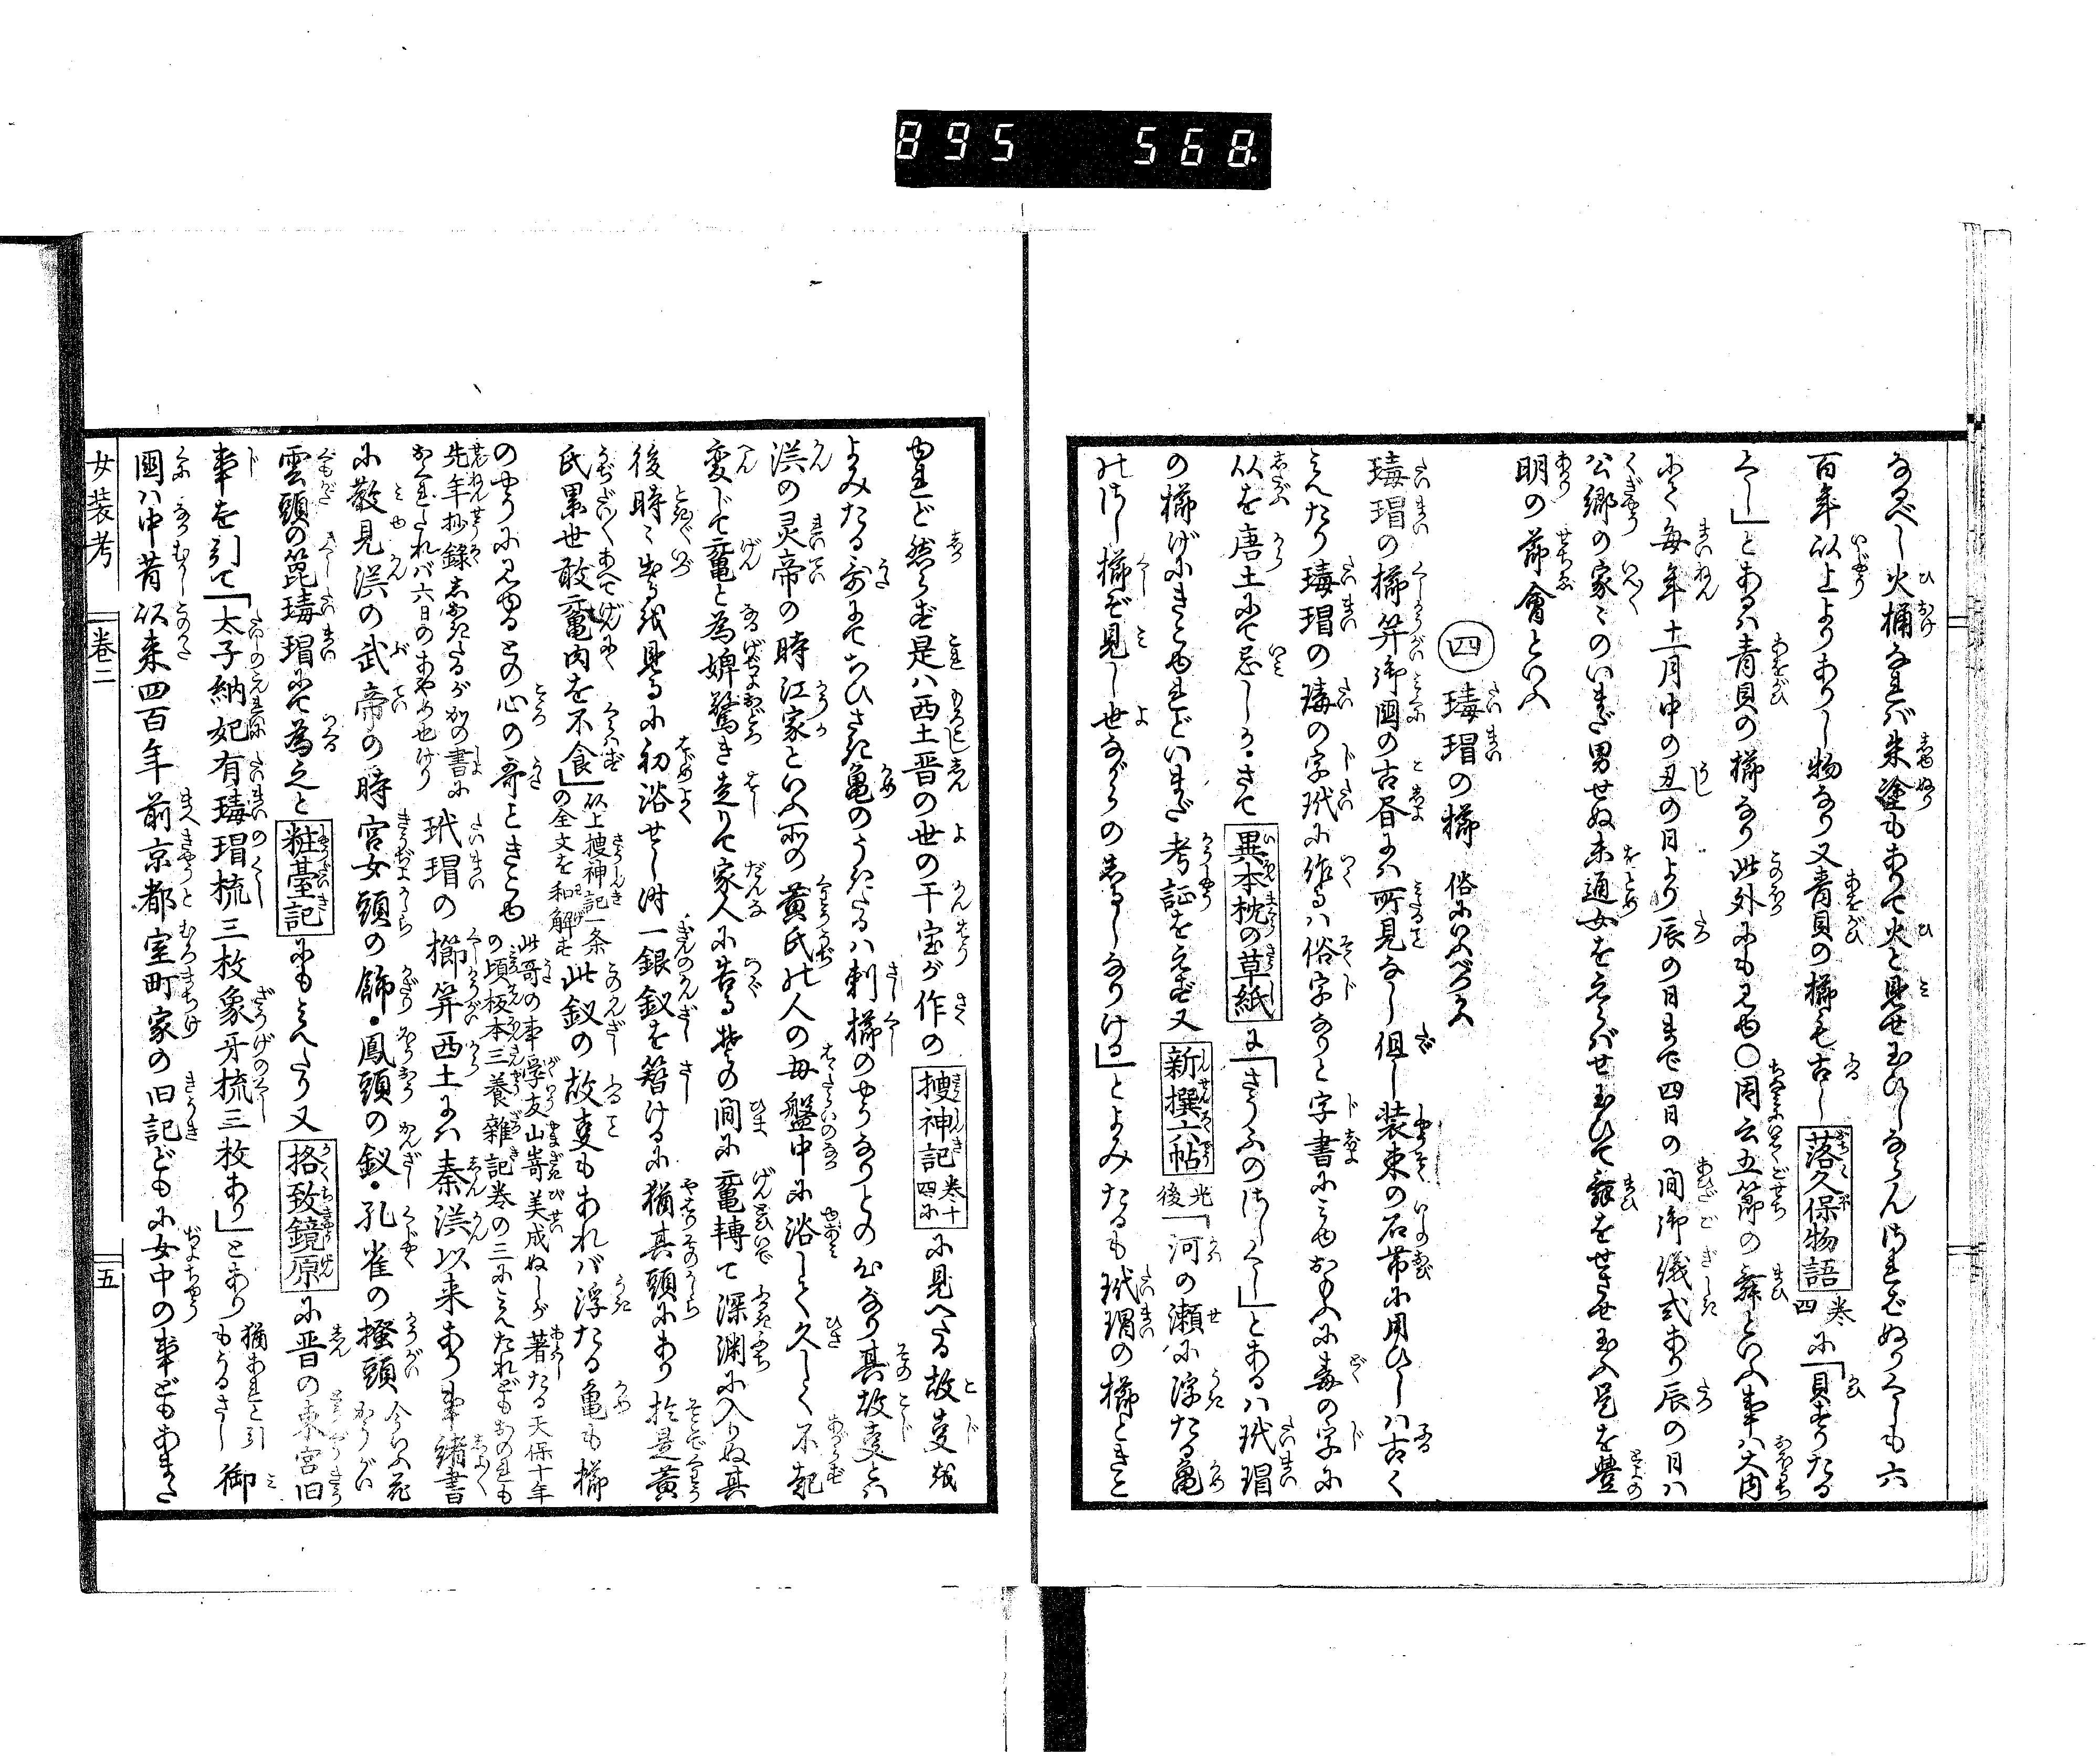 895 568
なるべし火桶なれバ朱塗もありて火と見せ玉ひしならんされどぬりぐしも六
百年以上よりありし物なり又青貝の櫛も古し落久保物語巻四に「貝すりたる
くし」とあるハ青貝の櫛なり此外にも見ゆ〇因云五節の舞といふ事ハ大内
にて毎年十一月中の丑の日より辰の日まで四日の間御儀式あり辰の日ハ
公卿の家々のいまだ男せぬ未通女をえらバせ玉ひて舞をせさせ玉ふ是を豊
明の節會といふ
四 瑇瑁の櫛 俗にいふべつかふ
瑇瑁の櫛笄御國の古昔にハ所見なし但し装束の石帯に用ひしハ古く
みえたり瑇瑁の瑇の字玳に作るハ俗字なりと字書にみゆおもふに毒の字に
似を唐土にて忌しか・さて異本枕の草紙に「さうふのさしぐし」とあるハ玳瑁
の櫛げにきこゆれどいまだ考証をえず又新撰六帖光後「河の瀬に浮たる亀
のさし櫛ぞ見し世ながらのしるしなりける」とよみたるも玳瑁の櫛ときこ
ゆれど然らず是ハ西土晋の世の干宝が作の捜神記巻十四に見へたる故事を
よみたる哥にてちひさき亀のうきたるハ刺櫛のやうなりとの心なり其故事とハ
漢の灵帝の時江家といふ所の黄氏の人の母盤中に浴して久しく不起
変じて黿と為婢驚き走りて家人に告る其の間に黿轉て深渕に入りぬ其
後時々出るを見るに初浴せし時一銀釵を簪けるに猶其頭にあり於是黄
氏累世敢黿肉を不食」以上捜神記一条の全文を和解す此釵の故事もあれバ浮たる亀も櫛
のやうに見ゆるとの心の哥ときこゆ此哥の事学友山嵜美成ぬしが著たる天保十年の頃板本三養雑記巻の三にみえたれどもおのれも
先年抄録しおきたるが如の書におくれたれバ六日のあやめ也けり玳瑁の櫛笄西土にハ秦漢以来あり事緒書
に散見漢の武帝の時宮女頭の飾・鳳頭の釵・孔雀の搔頭今いふ花かうがい
雲頭の箆瑇瑁にて為之と粧臺記にもみへたり又挌致鏡原に晋の東宮旧
事を引て「太子納妃有瑇瑁梳三枚象牙梳三枚あり」とあり猶あれど引もうるさし御
國ハ中昔以来四百年前京都室町家の旧記どもに女中の事どもあまた
女装考 巻二 五